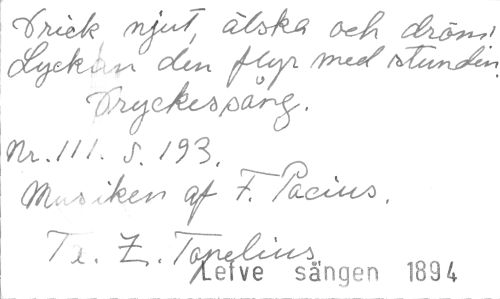 Drick njut, älska och dröm!
Lyckan den flyr med stunden.
Dryckessång.
Nr. 111. S. 193.
Musiken af F. Pacius.
Te. Z. Topelius
Lefve sången 1894